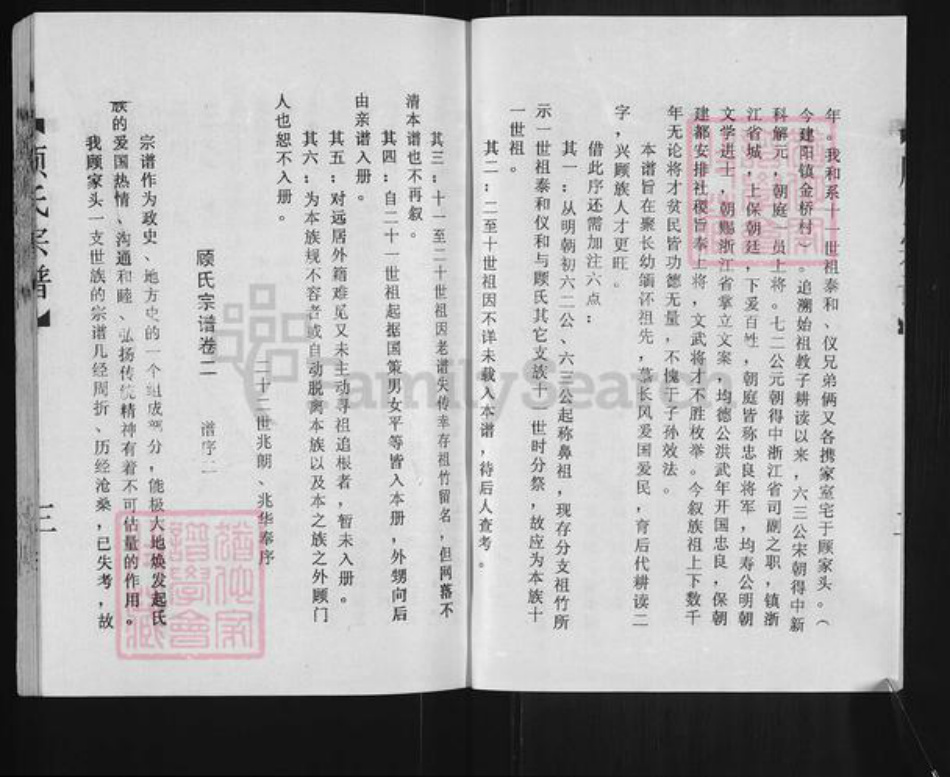 年。我和系十一世祖泰和、仪兄弟俩又各携家室宅于顾家头。（
今建阳镇金桥村）。追溯始祖教子耕读以来，六三公宋朝得中新
科解元，朝庭一员上将。七二公元朝得中浙江省司副之职，镇浙
江省城，上保朝廷，下爱百姓，朝庭皆称忠良将军，均寿公明朝
文学进士，朝赐浙江省掌立文案，均德公洪武年开国忠良，保朝
建都安排社稷旨奉上将，文武将才不胜枚举。今叙族祖上下数千
年无论将才贫民皆功德无量，不愧于子孙效法。
本谱旨在聚长幼缅怀祖先，慕长风爱国爱民，育后代耕读二
字，兴顾族人才更旺。
借此序还需加注六点：
其一：从明朝初六二公、六三公起称鼻祖，现存分支祖竹所
示一世祖泰和仪和与顾氏其它支族十一世时分祭，故应为本族十
一世祖。
其二：二至十世祖因不详未载入本谱，待后人查考。
其三：十一至二十世祖因老谱失传幸存祖竹留名，但网落不
清本谱也不再叙。
其四：自二十一世祖起据国策男女平等皆入本册，外甥向后
由亲谱入册。
其五：对远居外籍难见又未主动寻祖追根者，暂未入册。
其六：为本族规不容者或自动脱离本族以及本之族之外顾门
人也恕不入册。
二十二世兆朗、兆华奉序
顾氏宗谱卷二 谱序二
宗谱作为政史、地方史的一个组成部分，能极大地焕发起氏
族的爱国热情、沟通和睦、弘扬传统精神有着不可估量的作用。
我顾家头一支世族的宗谱几经周折、历经沧桑，已失考，故
顾氏宗谱
三
FamilySearch